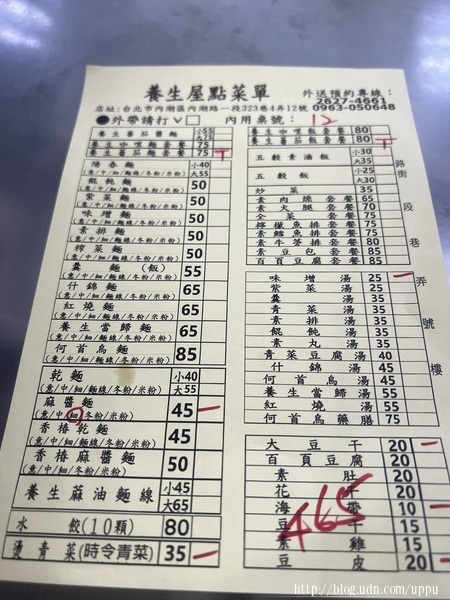 養生屋點菜單
外送預約專線：
2627-4661
店址：台北市內湖區內湖路一段323巷4弄12號 0963-050648
●外帶請打V□ 內用桌號：12
養生蕃茄醬麵 小55 大75
養生咖哩麵套餐 75
養生蕃茄麵套餐 75 T
陽春麵 小40
(意/中/細/麵線/冬粉/米粉) 大55
餛飩麵 50
(意/中/細/麵線/冬粉/米粉)
紫菜麵 50
(意/中/細/麵線/冬粉/米粉)
味增麵 50
(意/中/細/麵線/冬粉/米粉)
素排麵 50
(意/中/細/麵線/冬粉/米粉)
榨菜麵 50
(意/中/細/麵線/冬粉/米粉)
羹麵(飯) 55
(意/中/細/麵線/冬粉/米粉)
什錦麵 65
(意/中/細/麵線/冬粉/米粉)
紅燒麵 65
(意/中/細/麵線/冬粉/米粉)
養生當歸麵 65
(意/中/細/麵線/冬粉/米粉)
何首烏麵 85
(意/中/細/麵線/冬粉/米粉)
乾麵 小40
(意/中/細/麵線/冬粉/米粉) 大55
麻醬麵 45 一
(意/中/細/冬粉/米粉)
香椿乾麵 45
(意/中/細/麵線/冬粉/米粉)
香椿麻醬麵 50
(意/中/細/麵線/冬粉/米粉)
養生蔴油麵線 小45 大65
水餃(10顆) 80
燙青菜(時令青菜) 35 一
養生咖哩飯套餐 80
養生蕃茄飯套餐 80 T
五穀素油飯 小30 大35
五穀飯 小25 大30
炒菜 35
素肉燥套餐 65
素大腿套餐 70
全菜套餐 75
檸檬魚排套餐 75
素鱈魚排套餐 75
素牛蒡排套餐 80
素豆包套餐 85
百頁豆腐套餐 85
味增湯 25 一
紫菜湯 25
羹湯 35
青菜湯 35
素排湯 35
餛飩湯 35
素丸湯 35
青菜豆腐湯 40
什錦湯 45
何首烏湯 45
養生當歸湯 55
紅燒湯 55
何首烏藥膳 75
大豆干 20 一
百頁豆腐 20
素肚 20
花干 20
海帶 10 一
豆干
素雞 15
豆皮 20 一
465
路
街
段
巷
弄
號
樓
http://blog.udn.com/uppu